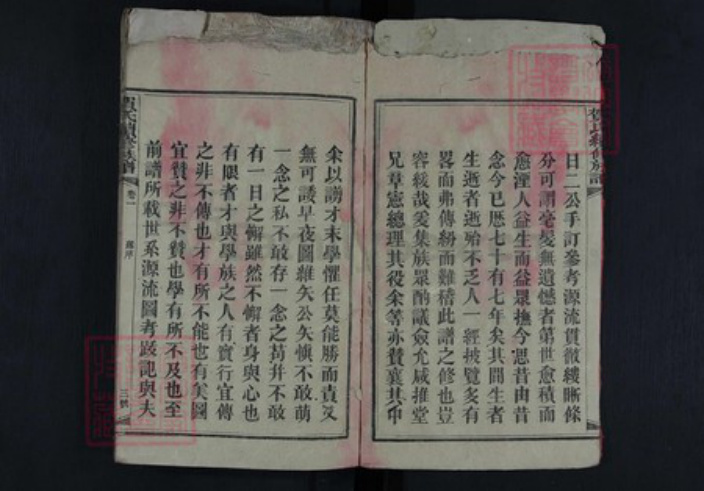 日二公手訂參考源流貫徹縷晰條
分可謂毫髮無遺憾者第世愈積而
愈湮人益生而益眾撫今思昔由昔
念今已曆七十有七年矣其間生者
生逝者逝殆不乏人一經披覽多有
畧而弗傳紛而難稽此譜之修也豈
容緩哉爰集族眾酌議僉允咸推堂
兄章憲總理其役余等亦贊襄其中
余以謭才末學懼任莫能勝而責又
無可諉早夜圖維矢公矢慎不敢萌
一念之私不敢存一念之苟并不敢
有一日之懈雖然不懈者身與心也
有限者才與學族之人有實行宜傳
之非不傳也才有所不能也有美圖
宜贊之非不贊也學有所不及也至
前譜所載世系源流圖考跋記與夫
氏續修族譜
卷一